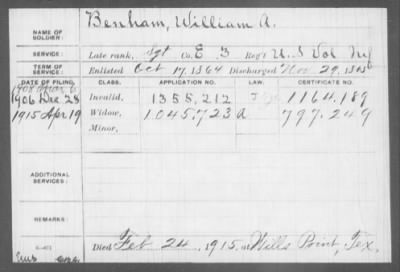 NAME OF SOLDIER: Benham, William A.
SERVICE: Late rank, Sgt Co. E 3 Reg't U.S Vol Inf
TERM OF SERVICE: Enlisted Oct 17, 1864 Discharged Nov 29, 1865
DATE OF FILING. CLASS. APPLICATION NO. LAW. CERTIFICATE NO.
1906 Dec 28 Invalid, 1355,212 1164,189
1915 Apr 19 Widow, 1045,723 A 797,249
Minor,
ADDITIONAL SERVICES:
REMARKS:
Died Feb 24, 1915, at Wills Point, Tex,